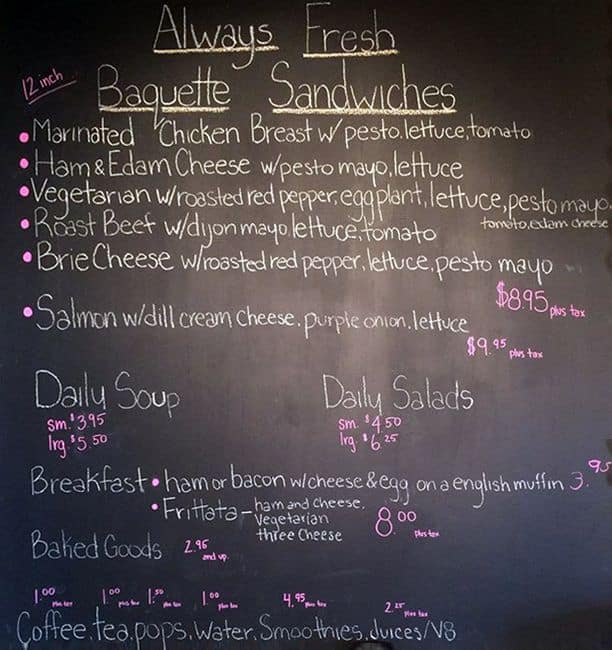 Always Fresh
12 inch
Baguette Sandwiches
• Marinated Chicken Breast w/ pesto, lettuce, tomato
• Ham & Edam Cheese w/pesto mayo, lettuce
• Vegetarian w/roasted red pepper, eggplant, lettuce, pesto mayo,
tomato, edam cheese
• Roast Beef w/dijon mayo lettuce, tomato
• Brie Cheese w/roasted red pepper, lettuce, pesto mayo
$8.95 plus tax
• Salmon w/dill cream cheese, purple onion, lettuce
$9.95 plus tax
Daily Soup
sm. $3.95
lrg. $5.50
Daily Salads
sm. $4.50
lrg. $6.25
Breakfast • ham or bacon w/cheese & egg on a english muffin 3.95
• Frittata – ham and cheese,
Vegetarian
three Cheese
8.00 plus tax
Baked Goods 2.95 and up.
1.00 plus tax 1.00 plus tax 1.50 plus tax 1.00 plus tax 4.95 plus tax 2.25 plus tax
Coffee, tea, pops, Water, Smoothies, Juices/V8